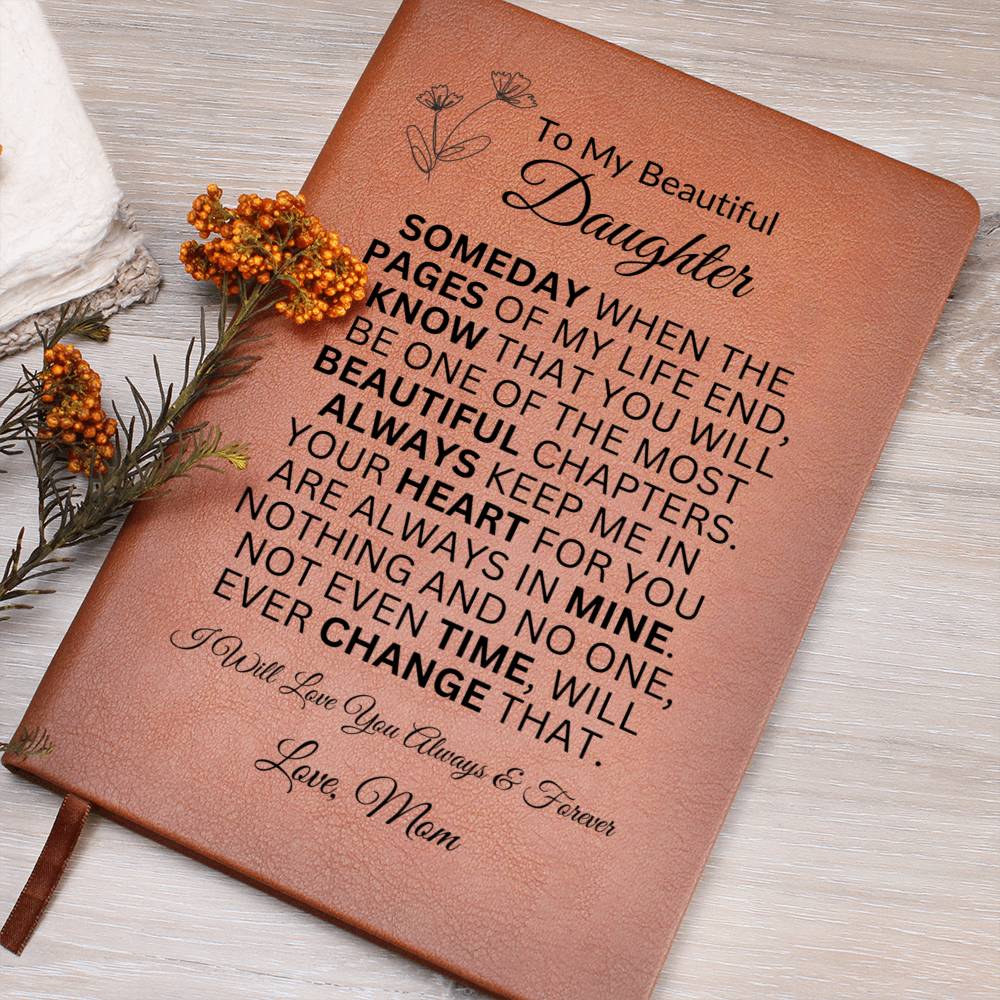 To My Beautiful
Daughter
SOMEDAY WHEN THE
PAGES OF MY LIFE END,
KNOW THAT YOU WILL
BE ONE OF THE MOST
BEAUTIFUL CHAPTERS.
ALWAYS KEEP ME IN
YOUR HEART FOR YOU
ARE ALWAYS IN MINE.
NOTHING AND NO ONE,
NOT EVEN TIME, WILL
EVER CHANGE THAT.
I Will Love You Always & Forever
Love, Mom